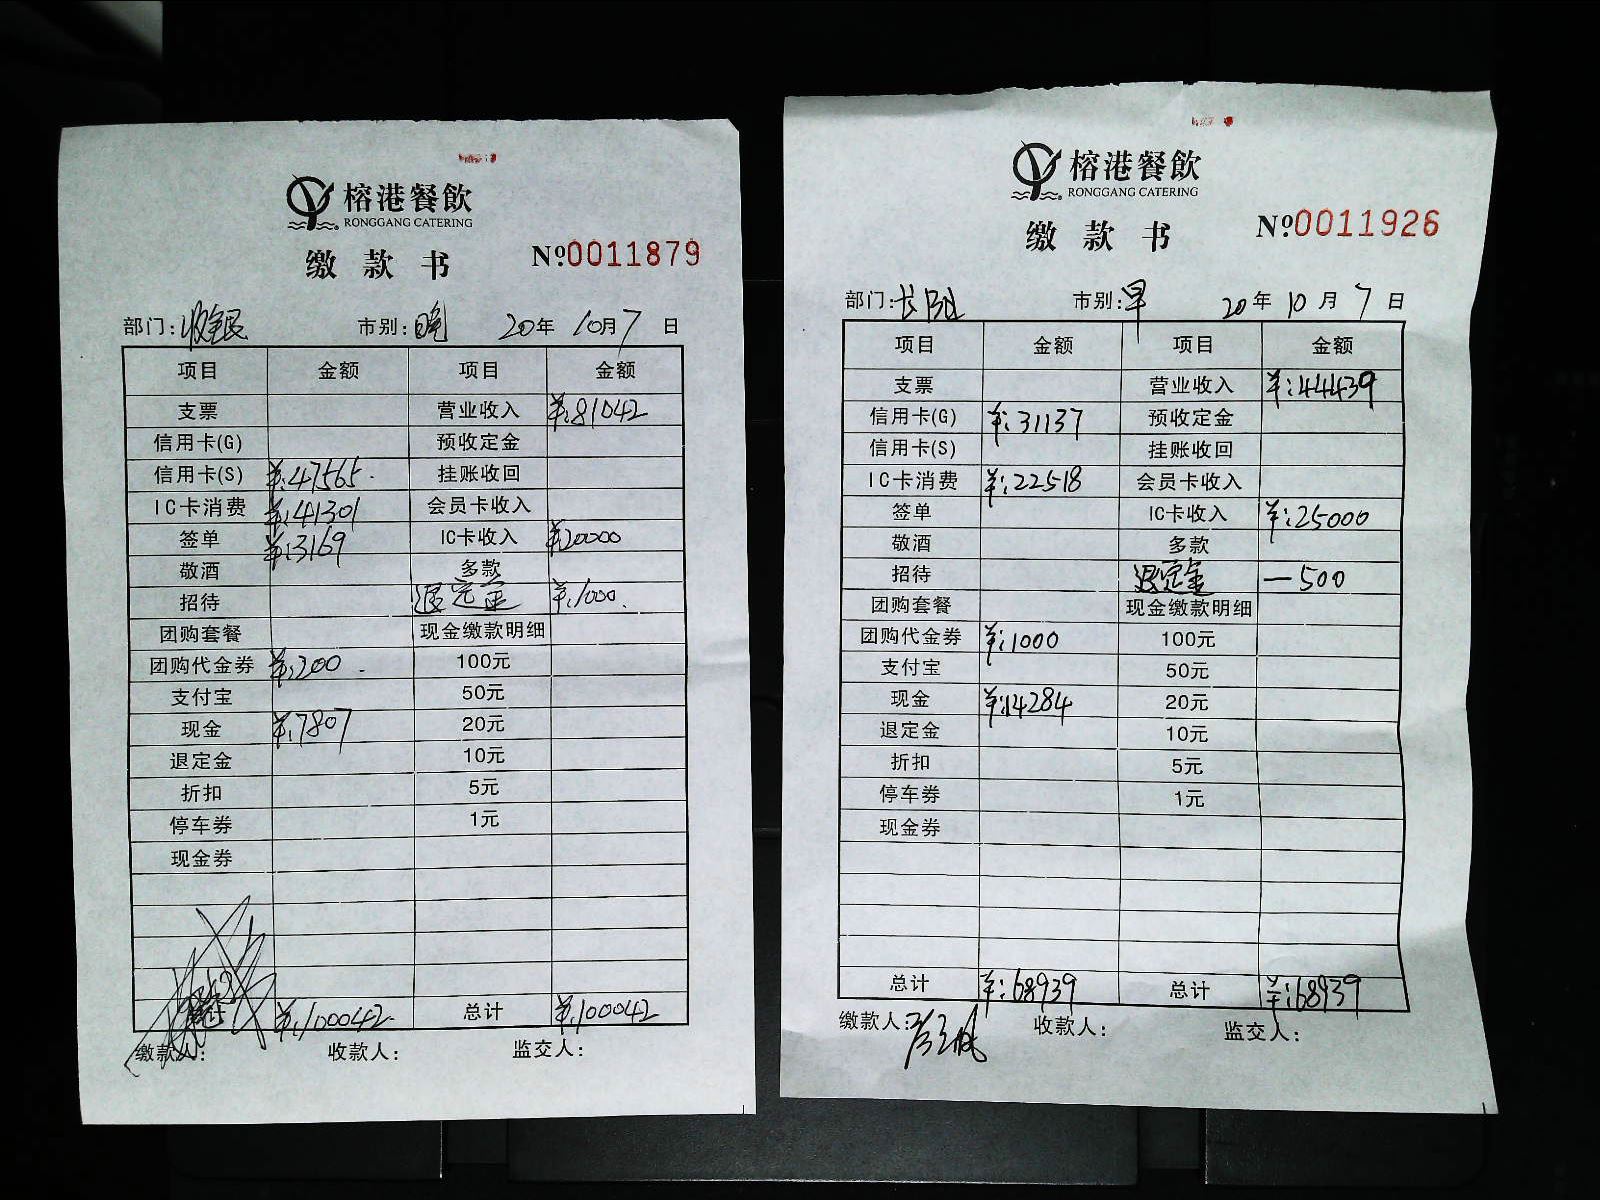 榕港餐飲
RONGGANG CATERING
缴款书
№0011879
部门:收银 市别:晚 20年10月7日
项目 金额 项目 金额
支票 营业收入 ¥:81042
信用卡(G) 预收定金
信用卡(S) ¥:47565 挂账收回
IC卡消费 ¥:41301 会员卡收入
签单 ¥:3169 IC卡收入 ¥20000
敬酒 多款
招待 退定金 ¥:1000
团购套餐 现金缴款明细
团购代金券 ¥:200 100元
支付宝 50元
现金 ¥:7807 20元
退定金 10元
折扣 5元
停车券 1元
现金券
¥:100042 总计 ¥:100042
缴款人: 收款人: 监交人:
榕港餐飲
RONGGANG CATERING
缴款书
№0011926
部门: 市别:早 20年10月7日
项目 金额 项目 金额
支票 营业收入 ¥:44439
信用卡(G) ¥:31137 预收定金
信用卡(S) 挂账收回
IC卡消费 ¥:22518 会员卡收入
签单 IC卡收入 ¥:25000
敬酒 多款
招待 退定金 —500
团购套餐 现金缴款明细
团购代金券 ¥:1000 100元
支付宝 50元
现金 ¥:14284 20元
退定金 10元
折扣 5元
停车券 1元
现金券
总计 ¥:68939 总计 ¥:68939
缴款人: 收款人: 监交人: